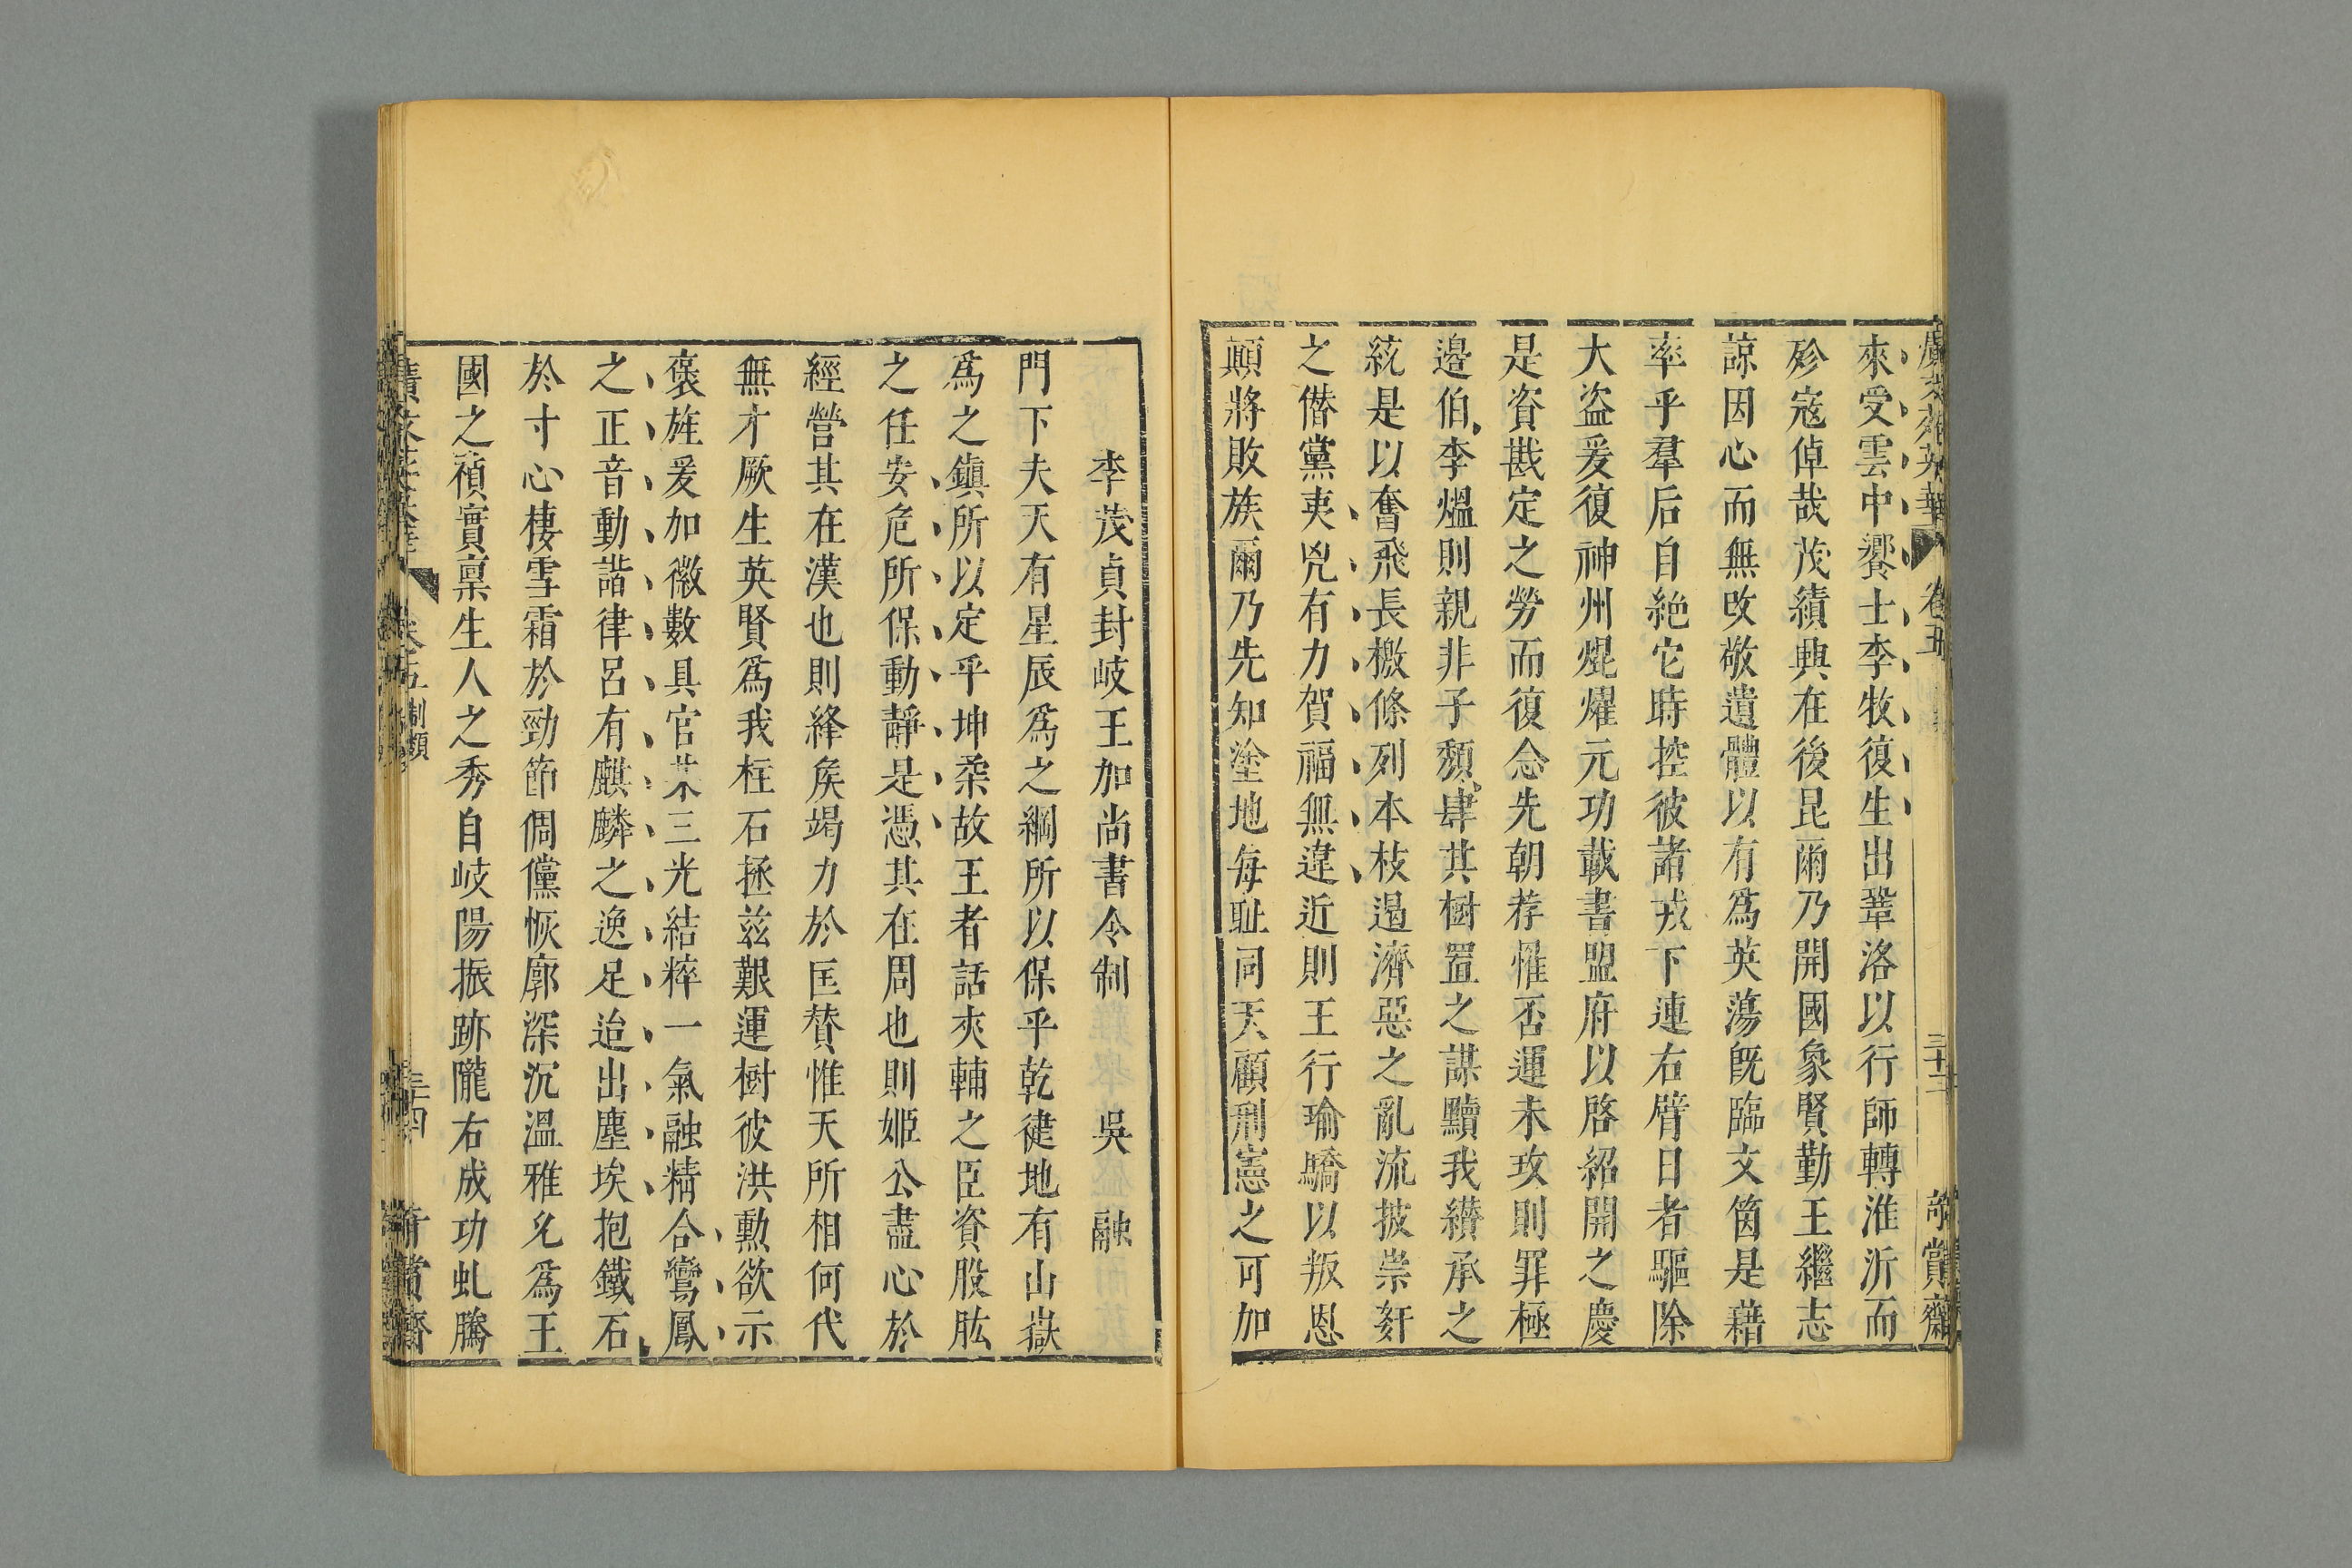 來受雲中饗士李牧復生出鞏洛以行師轉淮沂而
殄寇倬哉茂績典在後昆爾乃開國象賢勤王繼志
諒因心而無改敬遺體以有爲英蕩旣臨文茵是藉
率乎羣后自絶它時控彼諸戎下連右臂日者驅除
大盜爰復神州焜燿元功載書盟府以啓紹開之慶
是資戡定之勞而復念先朝荐罹否運未攻則罪極
邊伯李熅則親非子頽肆其樹置之謀黷我纉承之
統是以奮飛長檄條列本枝遏濟惡之亂流披祟姧
之僭黨夷兇有力賀福無違近則王行瑜驕以叛恩
顚將敗族爾乃先知塗地每耻同天顧刑憲之可加
李茂貞封岐王加尚書令制 吳融
門下夫天有星辰爲之綱所以保乎乾健地有山嶽
爲之鎮所以定乎坤柔故王者話夾輔之臣資股肱
之任安危所保動靜是憑其在周也則姬公盡心於
經營其在漢也則絳矦竭力於匡贊惟天所相何代
無才厥生英賢爲我柱石拯兹艱運樹彼洪勲欲示
褒旌爰加徽數具官某三光結粹一氣融精合鸞鳳
之正音動諧律呂有麒麟之逸足迨出塵埃抱鐵石
於寸心棲雪霜於勁節倜儻恢廓深沉溫雅允爲王
國之禎實稟生人之秀自岐陽振跡隴右成功虬騰
卷五 制類 三十四